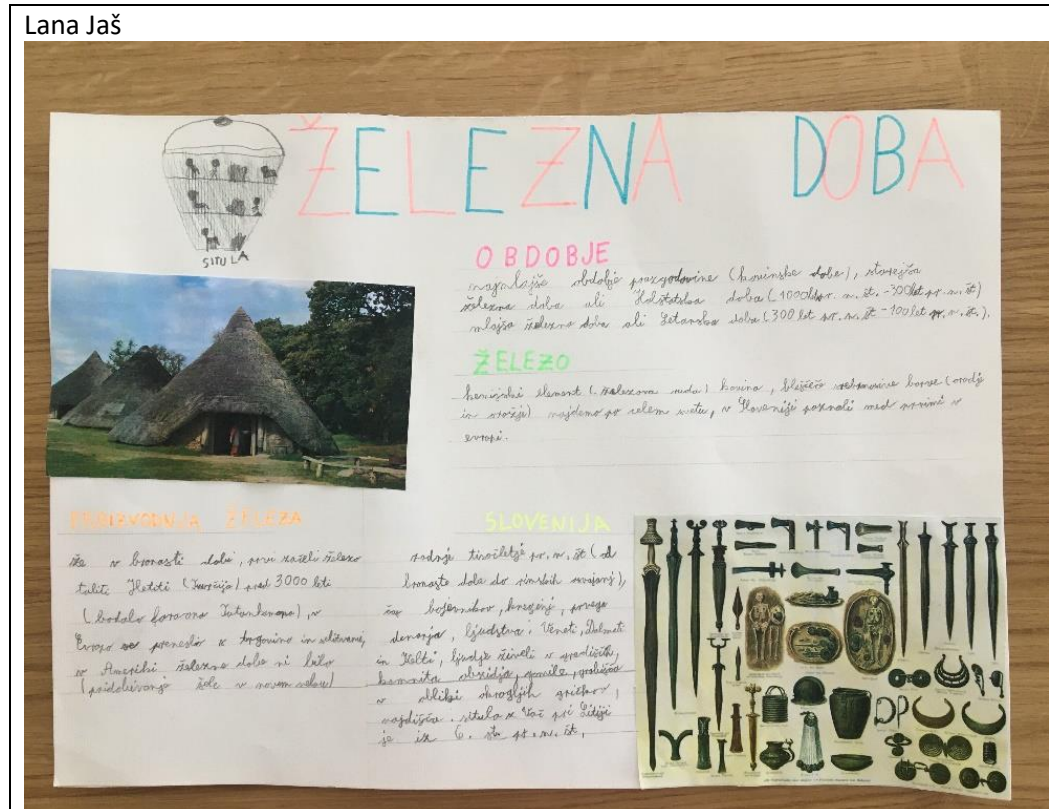 Lana Jaš
ŽELEZNA DOBA
SITULA
OBDOBJE
najmlajše obdobje prazgodovine (kovinske dobe), starejša
železna doba ali Halštatska doba (1000 let pr. n. št. - 300 let pr. n. št)
mlajša železna doba ali Latenska doba (300 let pr. n. št - 100 let pr. n. št.).
ŽELEZO
kemijski element (železova ruda) kovina, bleščeče srebrnosive barve (orodje
in orožje) najdemo po celem svetu, v Sloveniji poznali med prvimi v
evropi.
PROIZVODNJA ŽELEZA
že v bronasti dobi, prvi začeli železo
taliti Hetiti (Turčija) pred 3000 leti
(bodalo faraona Tutankamona), v
Evropo se preneslo s trgovino in
v Ameriki železne dobe ni bilo
(pridobivanje šele v novem veku)
SLOVENIJA
zadnje tisočletje pr. n. št (od
bronaste dobe do rimskih osvajanj),
čas bojevnikov, knezov, prvega
denarja, ljudstva: Veneti, Dalmati
in Kelti, ljudje živeli v gradiščih,
kamnita obzidja, gomile, grobišča
v obliki okroglih gričkov,
najdišča. situla z Vač pri Litiji
je iz 6. st. pr. n. št.